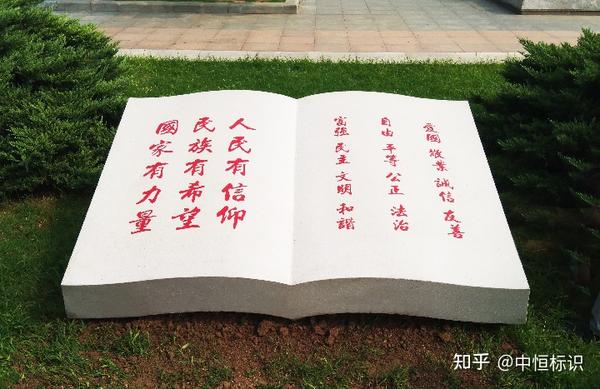 人民有信仰
民族有希望
國家有力量
愛國 敬業 誠信 友善
自由 平等 公正 法治
富强 民主 文明 和諧
知乎 @中恒标识